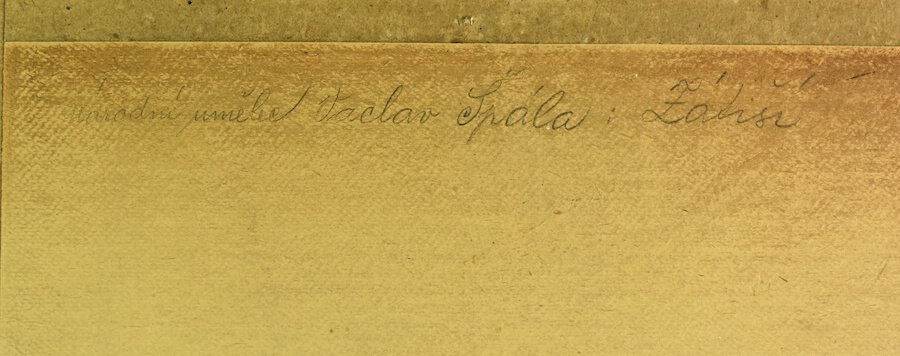 národní umělec Václav Špála : Zátiší